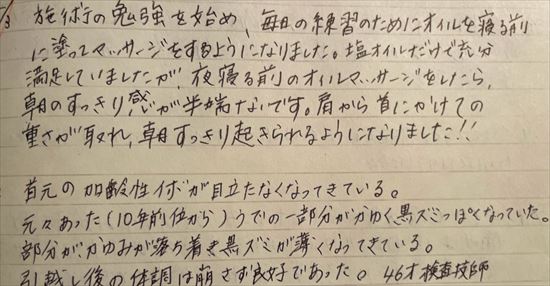 施術の勉強を始め、毎日の練習のためにオイルを寝る前
に塗ってマッサージをするようになりました。塩オイルだけで充分
満足していましたが、夜寝る前のオイルマッサージをしたら、
朝のすっきり感が半端ないです。肩から首にかけての
重さが取れ、朝すっきり起きられるようになりました!!
首元の加齢性イボが目立たなくなってきている。
元々あった(10年前位から)うでの一部分がかゆく黒ズミっぽくなっていた。
部分がかゆみが落ち着き黒ズミが薄くなってきている。
引越し後の体調は崩さず良好であった。 46才検査技師